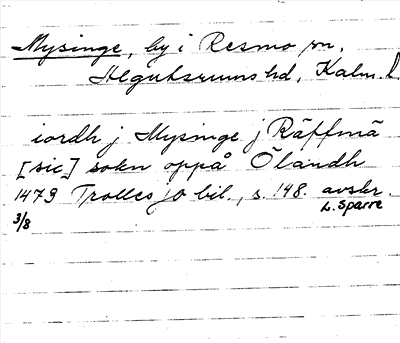 Mysinge, by i Resmo sn,
Algutsrums hd, Kalm. l.
iordh j Mysinge j Räffmä
[sic] sokn oppå Ölandh
1479 Trolles jb bil., s. 148. avskr.
3/8 L. Sparre